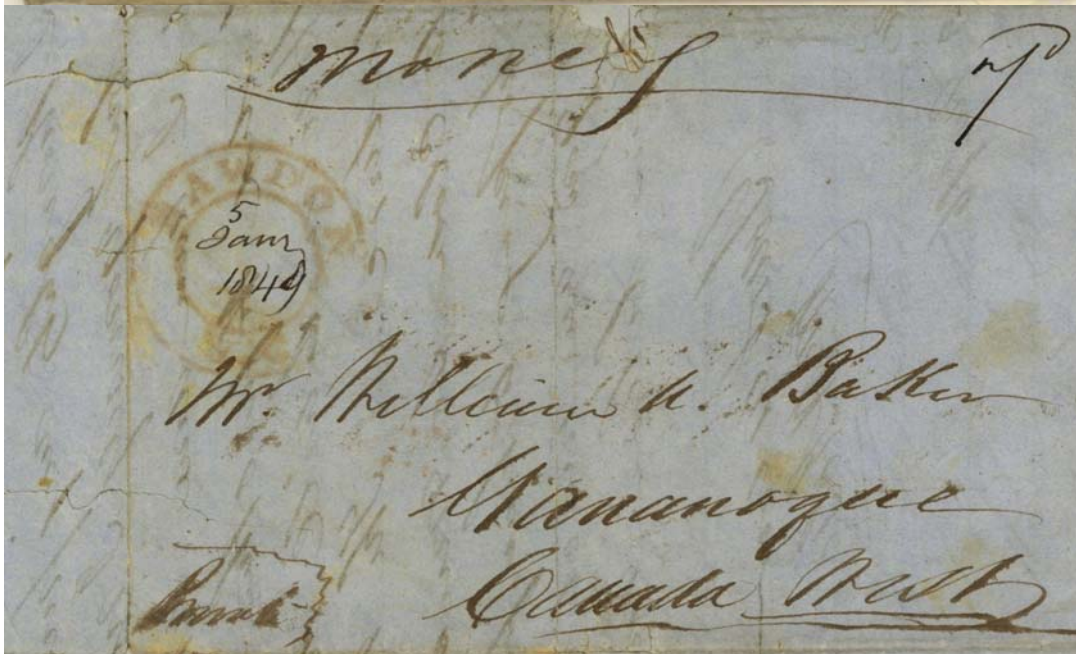 Money
RAWDON
5
Janr
1849
Mr. William A. Baker
Gananoque
Canada West